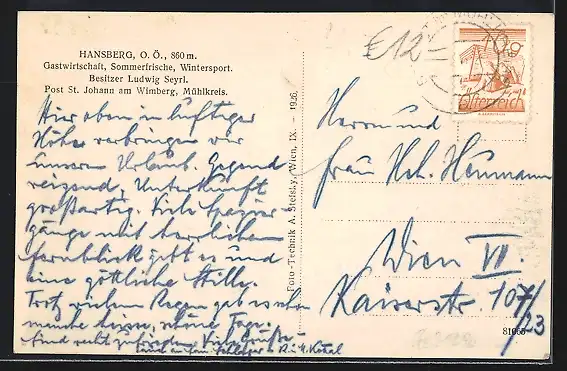 HANSBERG, O. Ö., 860 m.
Gastwirtschaft, Sommerfrische, Wintersport.
Besitzer Ludwig Seyrl.
Post St. Johann am Wimberg, Mühlkreis.
Hier oben in luftiger
Höhe verbringen wir
unseren Urlaub. Gegend
reizend, Unterkunft
großartig. Viele Spazier-
gänge mit herrlichem
Fernblick gibt es und
eine göttliche Stille.
Trotz vielem Regen gab es schon
manche schöne Tage.
Sind recht zufrieden. Viele Grüße
Foto-Technik A. Stefsky, Wien, IX. — 1926
€12
10g
Österreich
Herrn und
Frau Heumann
Wien VII.
Kaiserstr. 107/
23
81065